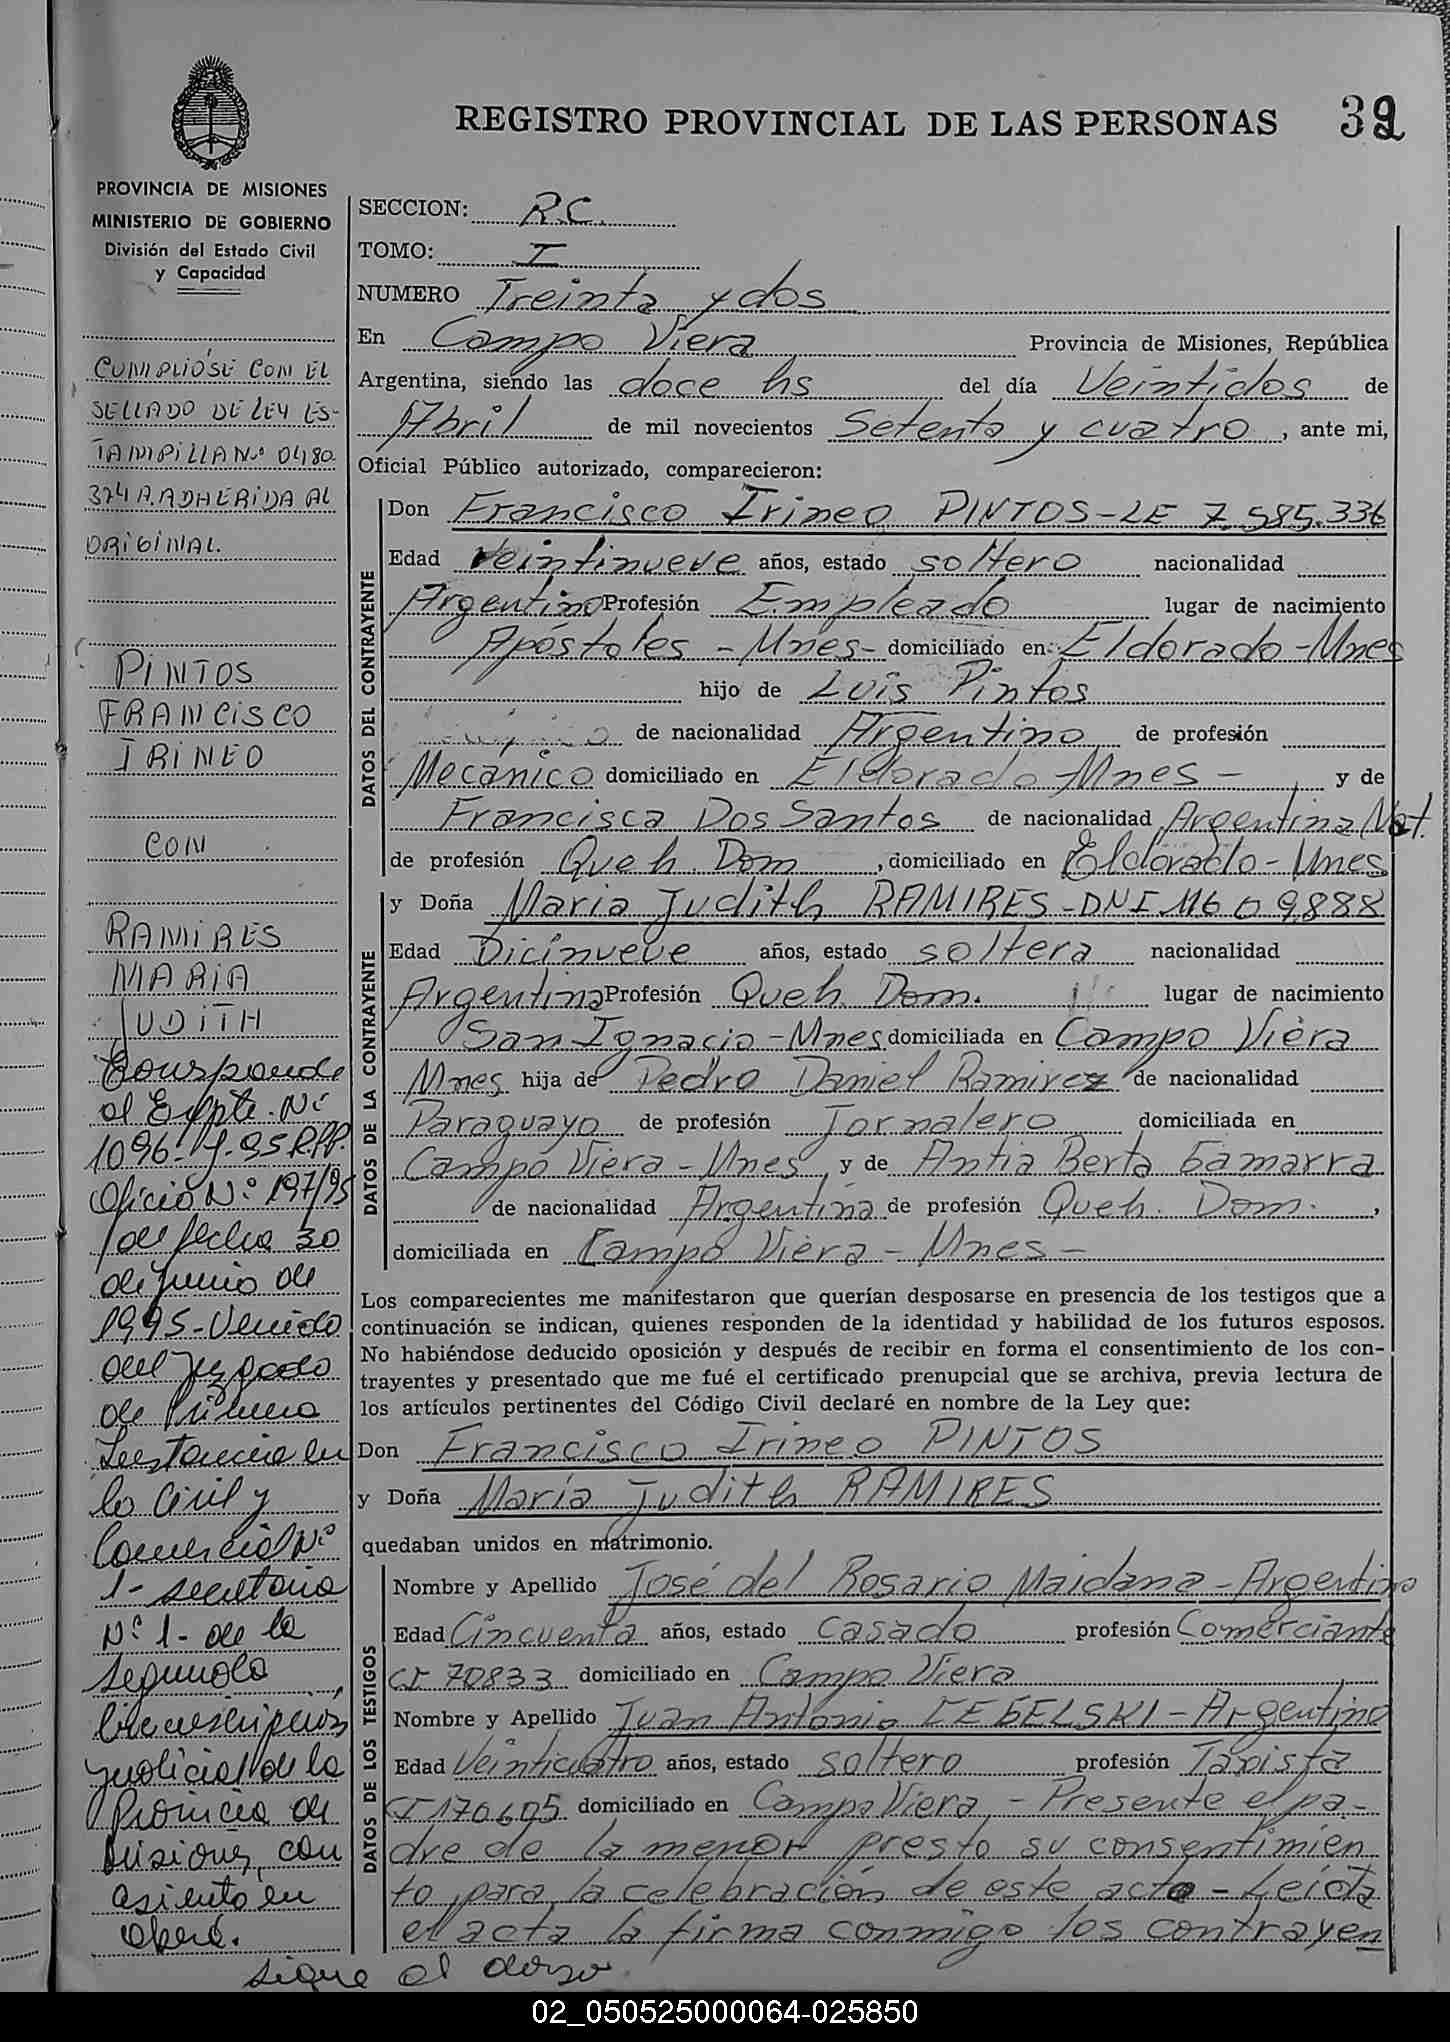 REGISTRO PROVINCIAL DE LAS PERSONAS 32
PROVINCIA DE MISIONES
MINISTERIO DE GOBIERNO
División del Estado Civil
y Capacidad
CUMPLIÓSE CON EL
SELLADO DE LEY ES-
TAMPILLA Nº 0480
374 A. ADHERIDA AL
ORIGINAL.
PINTOS
FRANCISCO
IRINEO
CON
RAMIRES
MARIA
JUDITH
Corresponde
al Expte. Nº
1096- -95 R.P.P.
Oficio Nº 197/95
de fecha 30
de Junio de
1995- Venido
del Juzgado
de Primera
Instancia en
lo Civil y
Comercial Nº
1- secretaria
Nº 1- de la
segunda
Circunscripción
judicial de la
Provincia de
Misiones, con
asiento en
Oberá.
SECCION: R.C.
TOMO: I
NUMERO Treinta y dos
En Campo Viera Provincia de Misiones, República
Argentina, siendo las doce hs del día Veintidos de
Abril de mil novecientos Setenta y cuatro, ante mi,
Oficial Público autorizado, comparecieron:
DATOS DEL CONTRAYENTE
Don Francisco Irineo PINTOS-LE 7.585.336
Edad Veintinueve años, estado soltero nacionalidad
Argentino Profesión Empleado lugar de nacimiento
Apóstoles - Mnes- domiciliado en Eldorado-Mnes
hijo de Luis Pintos
de nacionalidad Argentino de profesión
Mecánico domiciliado en Eldorado-Mnes- y de
Francisca Dos Santos de nacionalidad Argentina Nat.
de profesión Queh. Dom, domiciliado en Eldorado-Mnes
DATOS DE LA CONTRAYENTE
y Doña Maria Judith RAMIRES-DNI 11609888
Edad Dicinueve años, estado soltera nacionalidad
Argentina Profesión Queh. Dom. lugar de nacimiento
San Ignacio-Mnes domiciliada en Campo Viera
Mnes hija de Pedro Daniel Ramirez de nacionalidad
Paraguayo de profesión Jornalero domiciliada en
Campo Viera-Mnes y de Antia Berta Gamarra
de nacionalidad Argentina de profesión Queh. Dom.,
domiciliada en Campo Viera-Mnes-
Los comparecientes me manifestaron que querían desposarse en presencia de los testigos que a
continuación se indican, quienes responden de la identidad y habilidad de los futuros esposos.
No habiéndose deducido oposición y después de recibir en forma el consentimiento de los con-
trayentes y presentado que me fué el certificado prenupcial que se archiva, previa lectura de
los artículos pertinentes del Código Civil declaré en nombre de la Ley que:
Don Francisco Irineo PINTOS
y Doña María Judith RAMIRES
quedaban unidos en matrimonio.
DATOS DE LOS TESTIGOS
Nombre y Apellido José del Rosario Maidana-Argentino
Edad Cincuenta años, estado casado profesión Comerciante
CI 70833 domiciliado en Campo Viera
Nombre y Apellido Juan Antonio CEGELSKI-Argentino
Edad Veinticuatro años, estado soltero profesión Taxista
CI 170.605 domiciliado en Campo Viera, - Presente el pa-
dre de la menor presto su consentimien
to, para la celebración de este acto-Leída
el acta la firma conmigo los contrayen
sigue al dorso
02_050525000064-025850